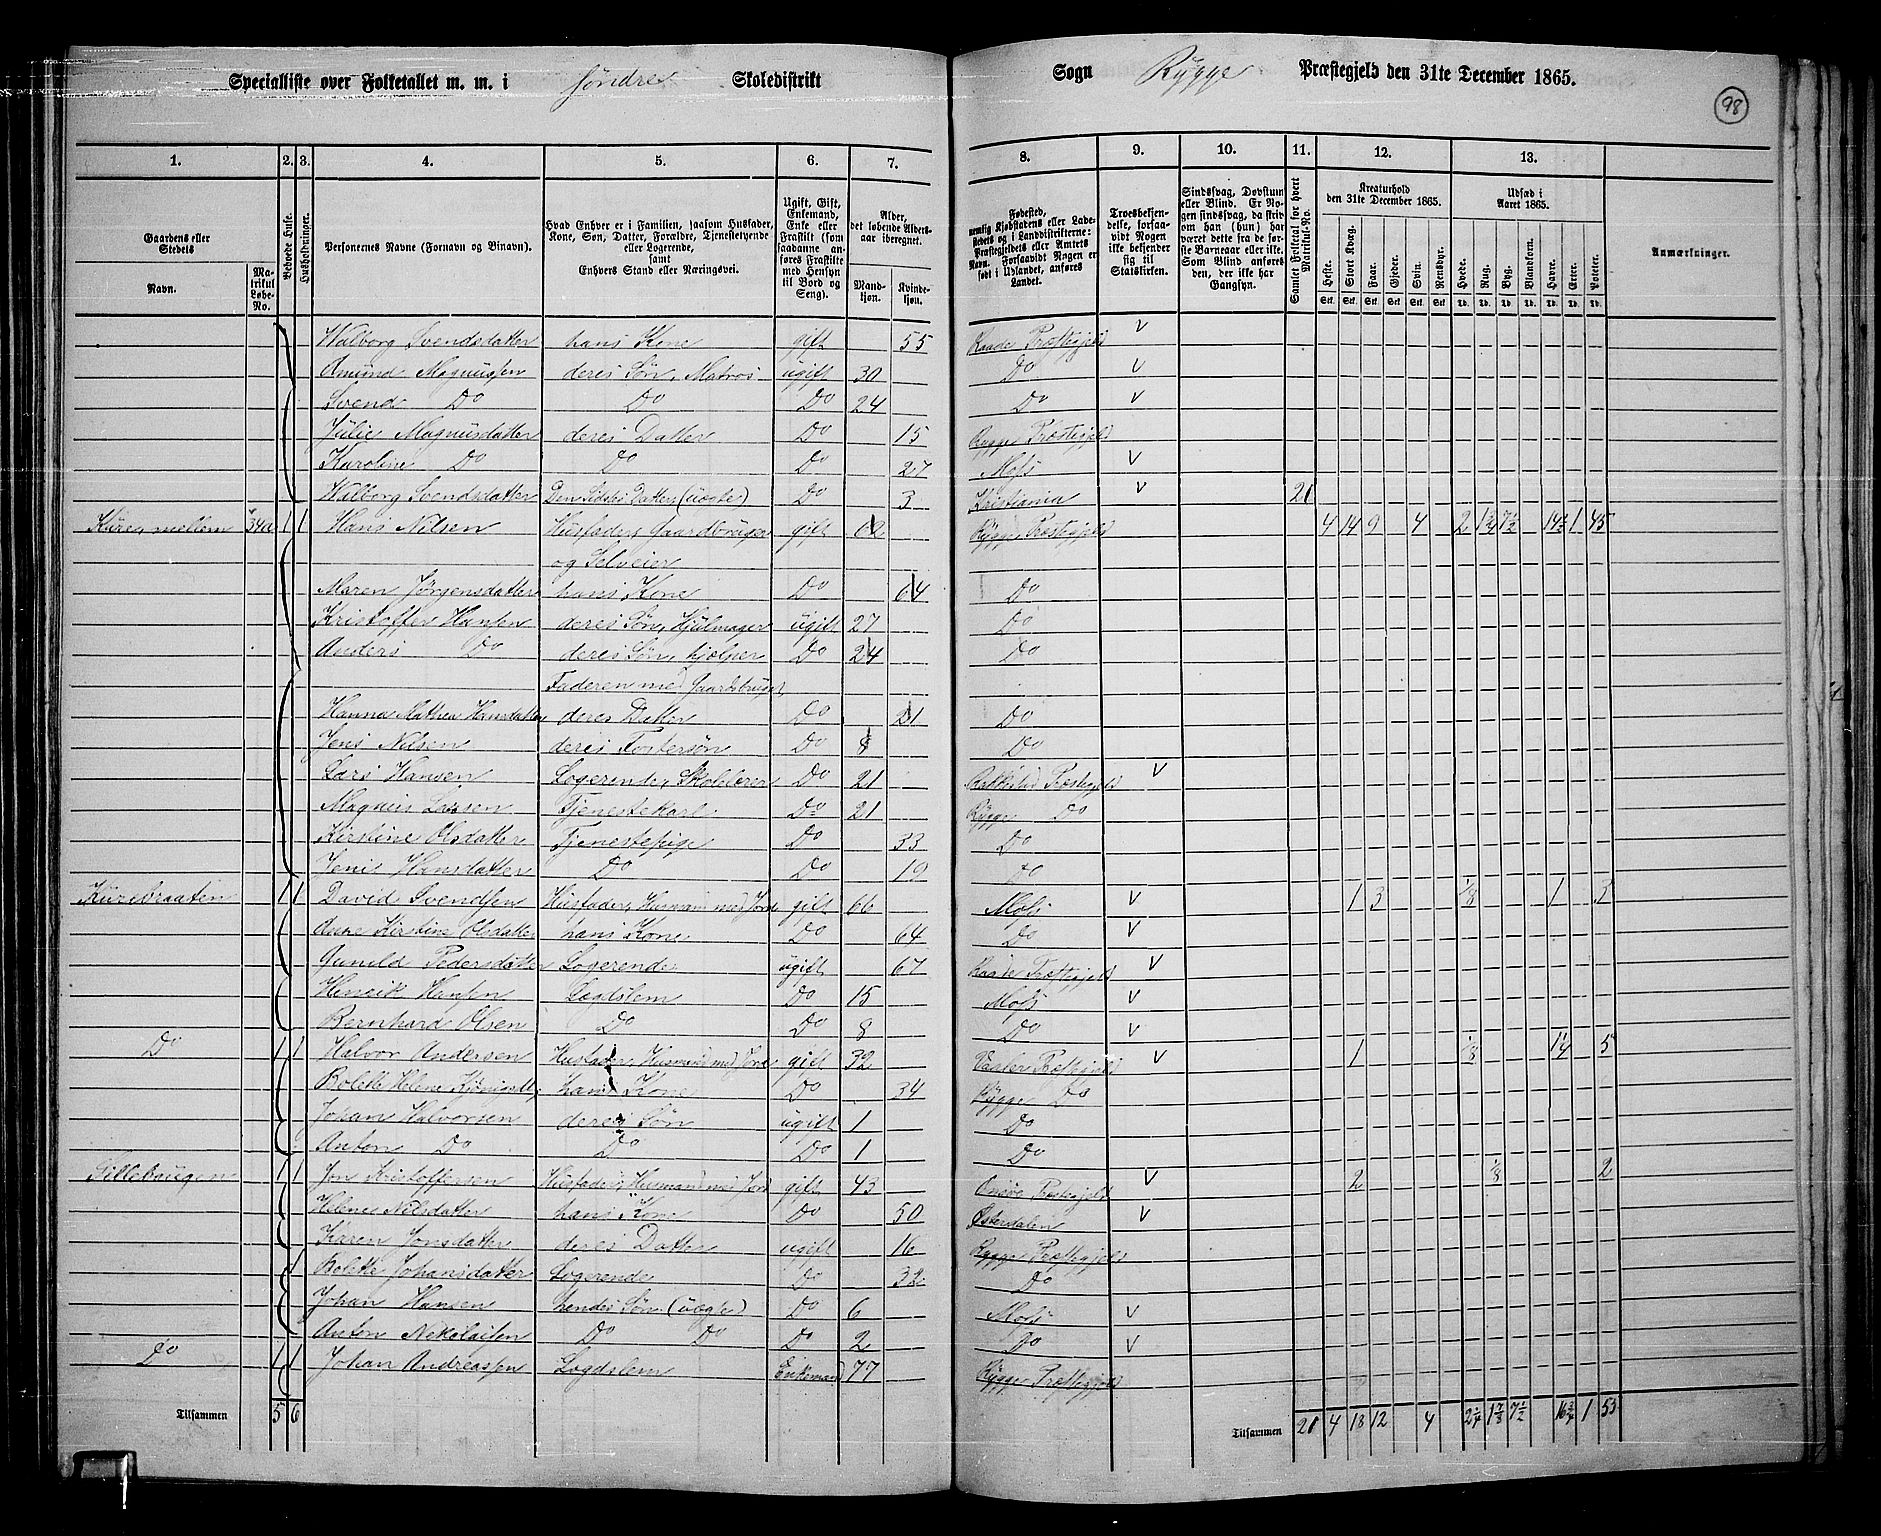 Specialliste over Folketallet m. m. i Søndre Skoledistrikt
Sogn Rygge Præstegjeld den 31te December 1865.
98
1. 2. 3. 4. 5. 6. 7. 8. 9. 10. 11. 12. 13.
Gaardens eller Stedets Navn.
Matrikul Løbe-No.
Beboede Huse.
Husholdninger.
Personernes Navne (Fornavn og Binavn).
Hvad Enhver er i Familien, saasom Husfader, Kone, Søn, Datter, Forældre, Tjenestetyende eller Logerende, samt Enhvers Stand eller Næringsvei.
Ugift, Gift, Enkemand, Enke eller Fraskilt (som saadanne anføres Fraskilte med Hensyn til Bord og Seng).
Alder, det løbende Aldersaar iberegnet.
Mandkjøn. Kvindekjøn.
Fødested, nemlig Kjøbstadens eller Ladestedets og i Landdistrikterne: Præstegjeldets eller Amtets Navn. Forsaavidt Nogen er født i Udlandet, anføres Landet.
Troesbekjendelse, forsaavidt Nogen ikke bekjender sig til Statskirken.
Sindssvag, Døvstum eller Blind. Er Nogen sindssvag, da skriv om han (hun) har været dette fra de første Barneaar eller ikke. Som Blind anføres den, der ikke har Gangsyn.
Samlet Folketal for hvert Matrikul-No.
Kreaturhold den 31te December 1865.
Heste. Stort Kvæg. Faar. Gjeder. Svin. Rensdyr.
Udsæd i Aaret 1865.
Hvede. Rug. Byg. Blandkorn. Havre. Erter. Poteter.
Anmærkninger.
Walborg Svendsdatter hans Kone gift 55 Raade Præstegjeld v
Amund Magnussen deres Søn, Matros ugift 30 Do v
Svend Do Do Do 24 Do v
Julie Magnusdatter deres Datter Do 15 Rygge Præstegjeld
Karoline Do Do Do 27 Moss v
Walborg Svendsdatter Den Sidstes Datter (uægte) Do 3 Kristiania v 21
Kure, mellem 34a 1 1 Hans Nilsen Husfader, Gaardbruger gift 62 Rygge Præstegjeld 4 14 9 4 2 1 3/4 7 1/2 14 1/2 1 45
og Selveier
Maren Jørgensdatter hans Kone Do 64 Do
Kristoffer Hansen deres Søn, Hjulmager ugift 27 Do
Anders Do deres Søn, hjelper Do 24 Do
Faderen med Gaardsbruget
Hanna Mathea Hansdatter deres Datter Do 21 Do
Jens Nilsen deres Fostersøn Do 8 Do
Lars Hansen Logerende, Skolelærer Do 21 Rakkestad Præstegjeld v
Magnus Larsen Tjenestekarl Do 21 Rygge Do
Kirstine Olsdatter Tjenestepige Do 33 Do
Jeni Hansdatter Do Do 19 Do
Kurebraaten 1 1 David Svendsen Husfader, Husmand med Jord gift 66 Moss v 1 3 1/8 1 3
Anne Kirstine Olsdatter hans Kone Do 64 Do v
Gunild Pedersdatter Logerende ugift 67 Raade Præstegjeld v
Henrik Hansen Lægdslem Do 15 Moss v
Bernhard Olsen Do Do 8 Do v
Do 1 1 Halvor Andersen Husfader, Husmand med Jord gift 32 Vaaler Præstegjeld v 1 1/8 1 1/4 5
Bolette Helene hans Kone Do 34 Rygge Do
Johan Halvorsen deres Søn ugift 1 Do
Anton Do Do Do 1 Do
Gillehaugen 1 1 Jon Kristoffersen Husfader, Husmand med Jord gift 43 Onsø Præstegjeld v 2 1/8 2
Helene Nilsdatter hans Kone Do 50 Østerdalen v
Karen Jonsdatter deres Datter ugift 16 Rygge Præstegjeld
1 Bolette Johansdatter Logerende Do 32 Do
Johan Hansen hendes Søn (uægte) Do 6 Moss v
Anton Nikolaisen Do Do Do 2 Do v
Do 1 1 Johan Andreassen Logdslem Enkemand 77 Rygge Præstegjeld
Tilsammen 5 6
Tilsammen 21 4 18 12 4 2 1/4 1 7/8 7 1/2 16 3/4 1 53